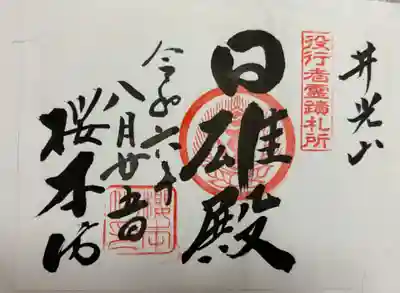 井光山
役行者霊蹟札所
日雄殿
令和六年
八月廿五日
櫻本坊